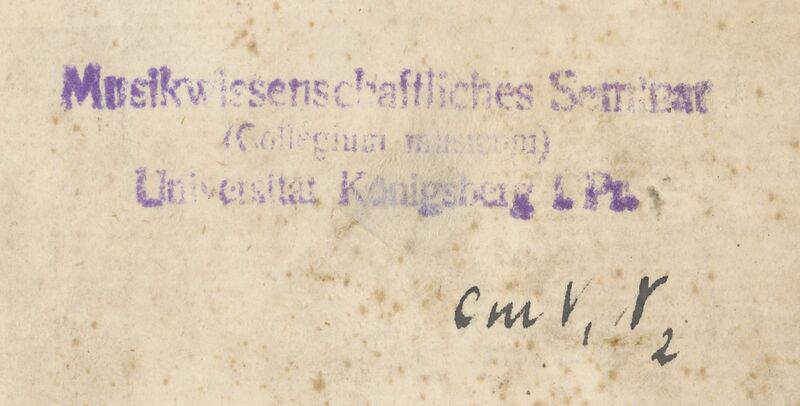 Musikwissenschaftliches Seminar
(Collegium musicum)
Universität Königsberg i. Pr.
cm V, V2